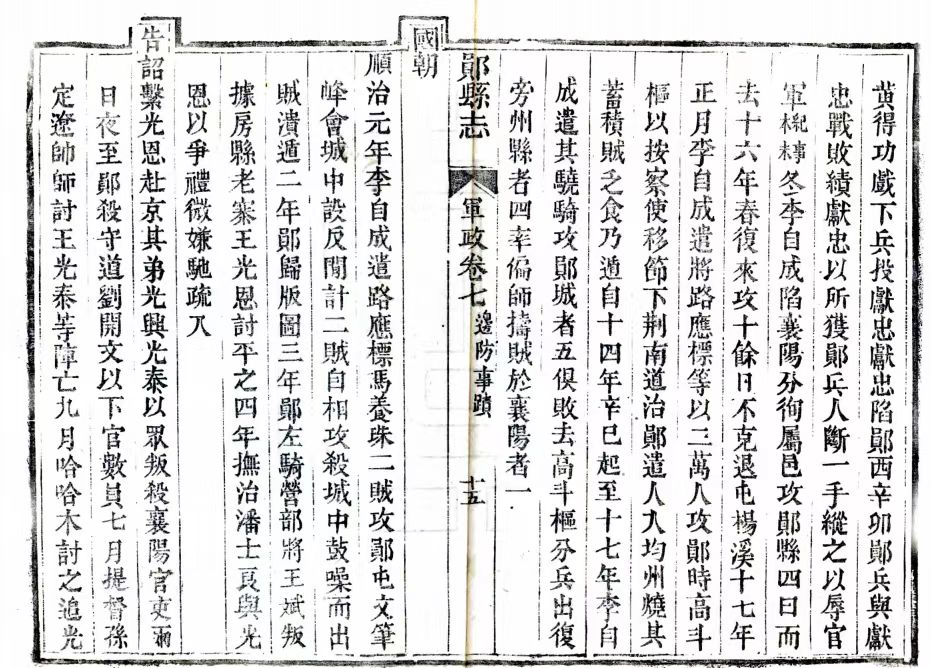 黄得功戲下兵投獻忠獻忠陷鄖西辛卯鄖兵與獻
忠戰敗績獻忠以所獲鄖兵人斷一手縱之以辱官
軍紀事本末冬李自成陷襄陽分徇屬邑攻鄖縣四日而
去十六年春復來攻十餘日不克退屯楊溪十七年
正月李自成遣將路應標等以三萬人攻鄖時高斗
樞以按察使移節下荆南道治鄖遣人入均州燒其
蓄積賊乏食乃遁自十四年辛巳起至十七年李自
成遣其驍騎攻鄖城者五俱敗去高斗樞分兵出復
旁州縣者四率偏師擣賊於襄陽者一
鄖縣志
軍政卷七
邊防事蹟
十五
國朝
順治元年李自成遣路應標馮養珠二賊攻鄖屯文筆
峰會城中設反間計二賊自相攻殺城中鼓噪而出
賊潰遁二年鄖歸版圖三年鄖左騎營部將王斌叛
據房縣老寨王光恩討平之四年撫治潘士良與光
恩以爭禮微嫌馳疏入
告詔繫光恩赴京其弟光興光泰以眾叛殺襄陽官吏兩
日夜至鄖殺守道劉開文以下官數員七月提督孫
定遼帥師討王光泰等陣亡九月哈哈木討之追光